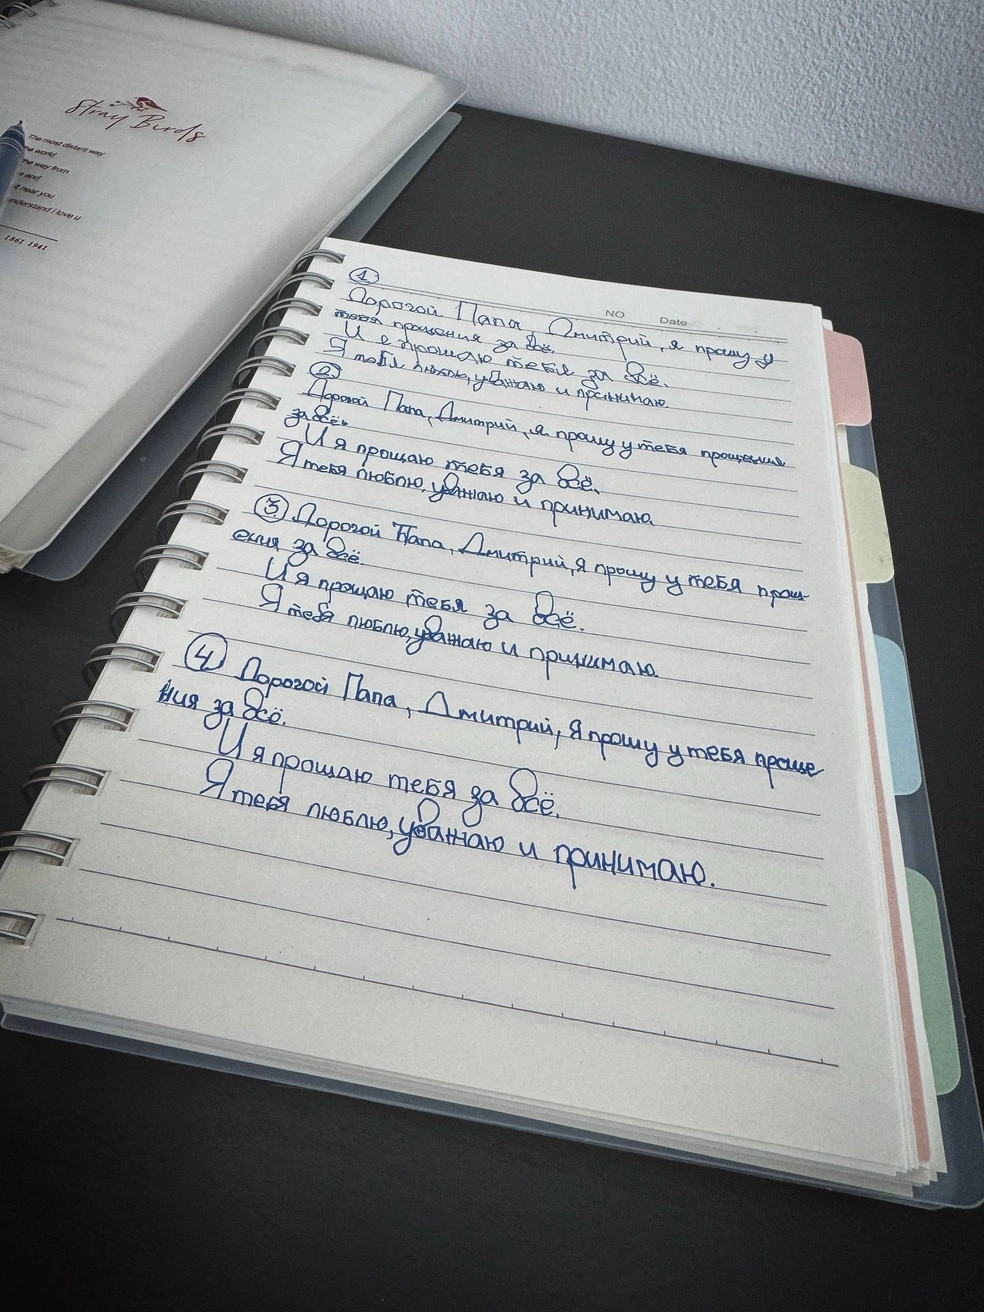 Stray Birds
The most distant way
he world
the way from
e and
it near you
understand i love u
1861 1941
NO Date
1
Дорогой Папа, Дмитрий, я прошу у
тебя прощения за всё.
И я прощаю тебя за всё.
Я тебя люблю, уважаю и принимаю.
2
Дорогой Папа, Дмитрий, я прошу у тебя прощения
за всё.
И я прощаю тебя за всё.
Я тебя люблю, уважаю и принимаю.
3 Дорогой Папа, Дмитрий, я прошу у тебя прощ-
ения за всё.
И я прощаю тебя за всё.
Я тебя люблю, уважаю и принимаю.
4 Дорогой Папа, Дмитрий, я прошу у тебя проще
ния за всё.
И я прощаю тебя за всё.
Я тебя люблю, уважаю и принимаю.